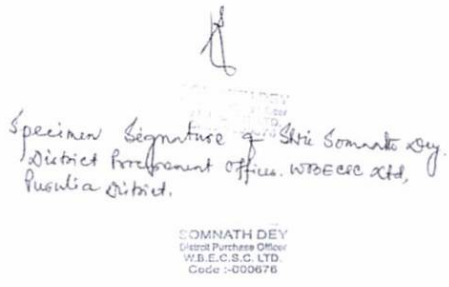 SOMNATH DEY
LTD.
Specimen Signature of Shri Somnath Dey.
District Procurement Officer. WBECSC Ltd,
Purulia District.
SOMNATH DEY
District Purchase Officer
W.B.E.C.S.C. LTD.
Code :-000676